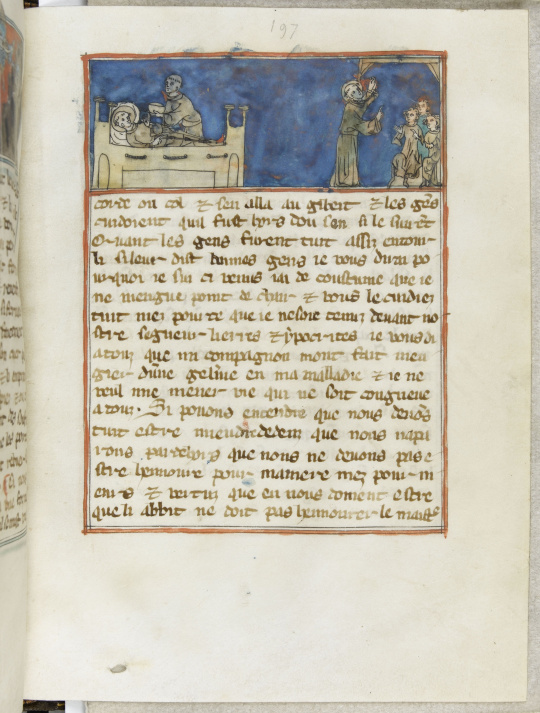 197
corde ou col & sen alla au gibeit & les gēs
cuidoient quil fust hors dou sen si le
Quant les gens furent tuit assis entour
li si leur dist bonnes gens ie vous dirai po
urquoi ie sui ci venus iai de coustume que ie
ne mengue point de char & vous le cuidiez
tuit mez pour ce que ie ne soie tenuz devant no
stre segneur herites & ypocrites ie vous di
a touz que mi compagnon mont fait men
gier dune geline en ma malladie & ie ne
veul mie mener vie qui ne soit congneue
a touz. Si pouons entendre que nous deuōs
tuit estre par dedenz que nous
par dehors que nous ne deuons pas e
stre hennoure pour maniere mez pour
& vertuz que en nous doiuent estre
que li abbit ne doit pas hennourer le